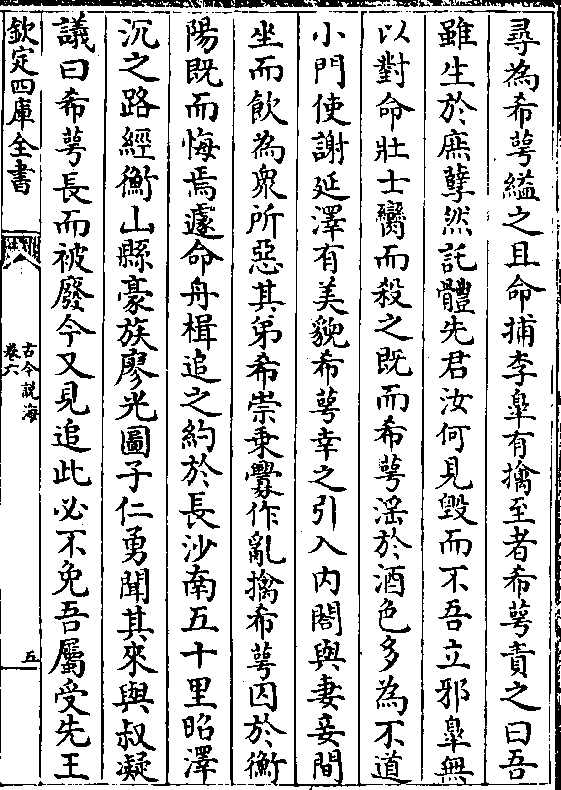 尋為希萼縊之且命捕李臯有擒至者希萼責之曰吾
雖生於庶孽然託體先君汝何見毀而不吾立邪臯無
以對命壯士臠而殺之既而希萼滛於酒色多為不道
小門使謝延澤有美貌希萼幸之引入内閣與妻妾間
坐而飲為衆所惡其弟希崇乗釁作亂擒希萼囚於衡
陽既而悔焉遽命舟楫追之約於長沙南五十里昭澤
沉之路經衡山縣豪族廖光圖子仁勇聞其來與叔凝
議曰希萼長而被廢今又見追此必不免吾屬受先王
欽定四庫全書
古今説海
卷六
五